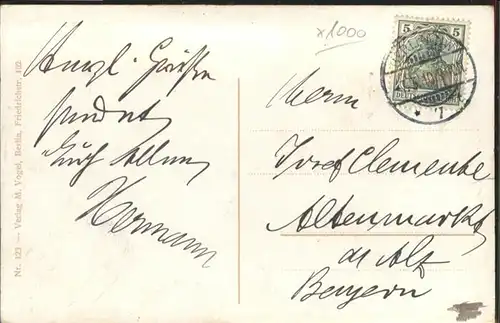 x1000
5 5
Herzl. Grüße
sendet
Euch Allen
Hermann
Herrn
Josef Clemente
Altenmarkt
a/ Alz
Bayern
Nr. 123 — Verlag M. Vogel, Berlin, Friedrichstr.